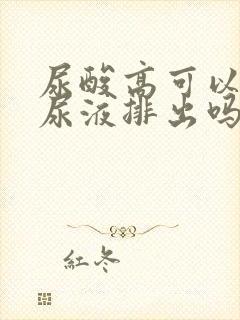 尿酸高可以
尿液排出吗
紅冬